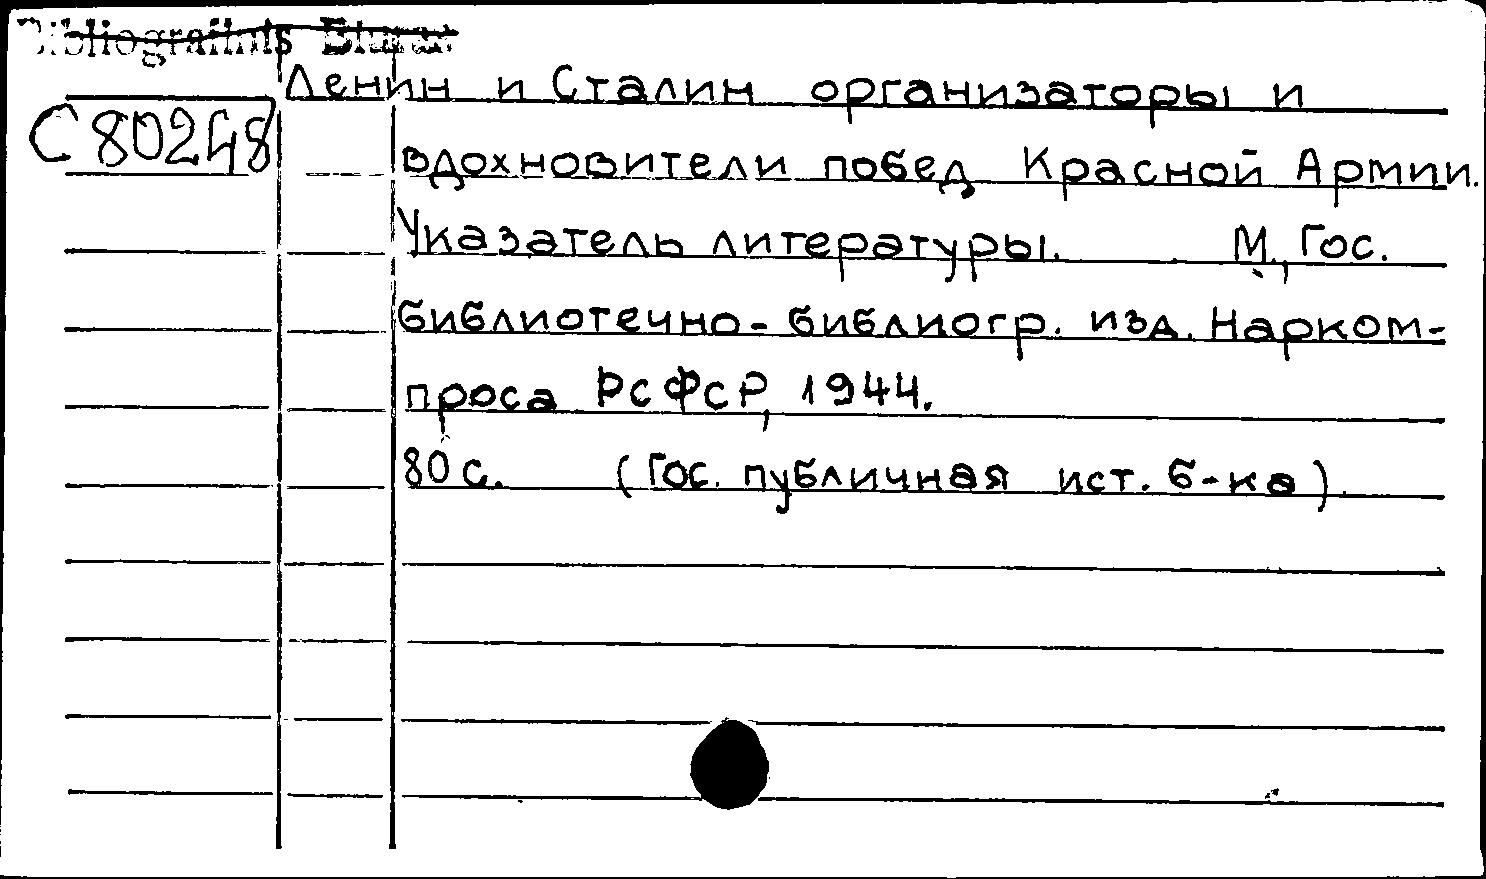 Bibliografinis Biuras
Ленин и Сталин организаторы и
С 80248
вдохновители побед Красной Армии.
Указатель литературы. М., Гос.
библиотечно-библиогр. изд. Нарком-
проса РСФСР, 1944.
80 с. (Гос. публичная ист. б-ка)